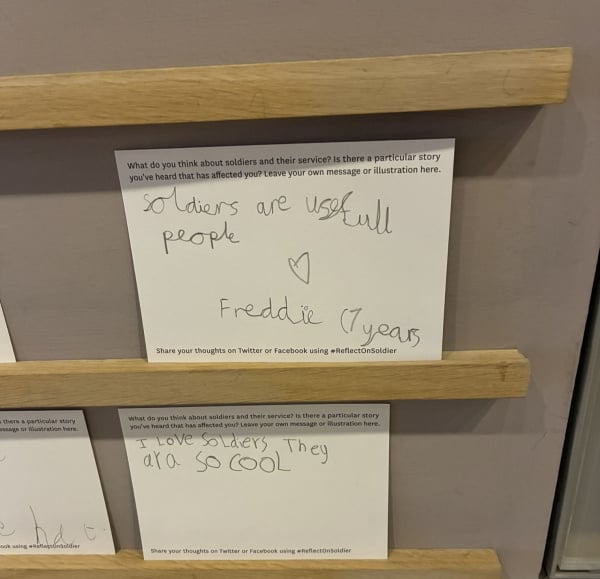 What do you think about soldiers and their service? Is there a particular story
you've heard that has affected you? Leave your own message or illustration here.
Soldiers are usefull
people
Freddie (7 years
Share your thoughts on Twitter or Facebook using #ReflectOnSoldier
there a particular story
message or illustration here.
ook using #ReflectOnSoldier
What do you think about soldiers and their service? Is there a particular story
you've heard that has affected you? Leave your own message or illustration here.
I Love Soldiers They
ara SO COOL
Share your thoughts on Twitter or Facebook using #ReflectOnSoldier